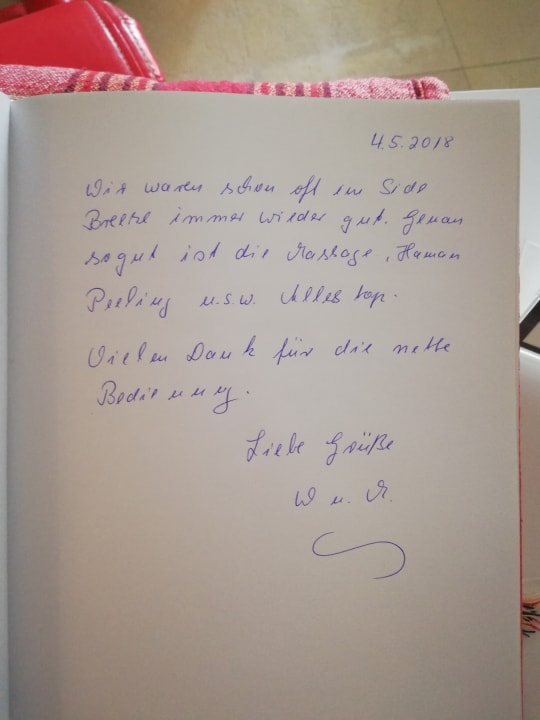 4.5.2018
Wir waren schon oft im Side
Breeze immer wieder gut. Genau
sogut ist die Massage, Hamam
Peeling u.s.w. Alles top.
Vielen Dank für die nette
Bedienung.
Liebe Grüße
W u. A.